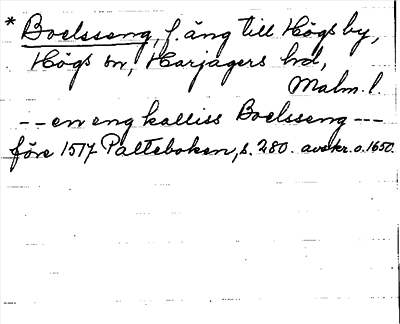 * Boelsseng, f. äng till Högs by,
Högs sn, Harjagers hd,
Malm. l.
-- en eng kalliss Boelsseng ---
före 1517 Palteboken, s. 280. avskr. o. 1650.